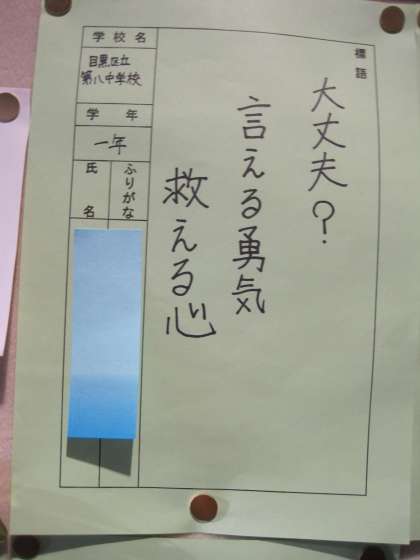 標語
大丈夫?
言える勇気
救える心
学校名
目黒区立
第八中学校
学年
一年
ふりがな
氏名